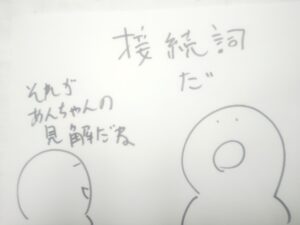 接続詞
だ
それが
あんちゃんの
見解だね